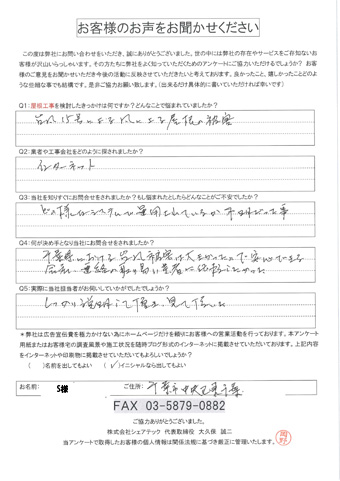 お客様のお声をお聞かせください
この度は弊社にお問い合わせをいただき、誠にありがとうございました。世の中には弊社の存在やサービスをご存知ないお
客様が沢山いらっしゃいます。その方たちに弊社をよく知っていただくためのアンケートにご協力いただけるでしょうか? お客
様のご意見をお聞かせいただき今後の活動に反映させていただきたいと考えております。良かったこと、嬉しかったことどのよ
うな些細な事でも結構です。是非ご協力お願い致します。(出来るだけ具体的に書いていただければ幸いです)
Q1:屋根工事を検討したきっかけは何ですか?どんなことで悩まれていましたか?
台風15号による風による屋根の被害
Q2:業者や工事会社をどのように探されましたか?
インターネット
Q3:当社を知りすぐにお問合せをされましたか?もし悩まれたとしたらどんなことがご不安でしたか?
どの様なシステムで運用されているか不明だった事
Q4:何が決め手となり当社にお問合せをされましたか?
千葉県における台風被害は大きかったので安心できる
会社に連絡の取り易い業者に依頼したかった
Q5:実際に当社担当者にお伺いしていかがでしたでしょうか?
しっかり説明して頂き、見て頂いた
*弊社は広告宣伝費を極力かけない為にホームページだけを頼りにお客様への営業活動を行っております。本アンケート
用紙またはお客様宅の調査風景や施工状況を随時ブログ形式のインターネットに掲載させていただいております。上記内容
をインターネットや印刷物に掲載させていただいてもよろしいでしょうか?
( )名前を出してもよい (✓)イニシャルなら出してもよい
お名前: S様 ご住所: 千葉市中央区
FAX 03-5879-0882
ご協力ありがとうございました。
株式会社シェアテック 代表取締役 大久保 誠二
当アンケートで取得したお客様の個人情報は関係法規に基づき厳正に管理いたします。